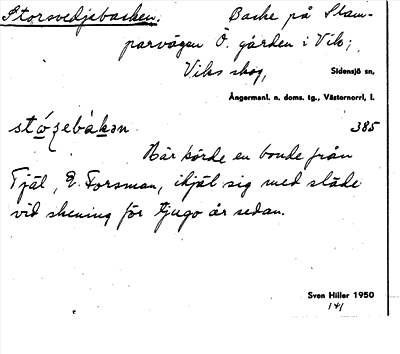 Storsvedjebacken. Backe på Stam-
parvägen Ö. gården i Vik;
Viks skog, Sidensjö sn,
Ångermanl. n. doms. tg., Västernorrl. l.
385
Här körde en bonde från
Tjäl, E. Forsman, ihjäl sig med släde
vid skening för tjugo år sedan.
Sven Hiller 1950
141